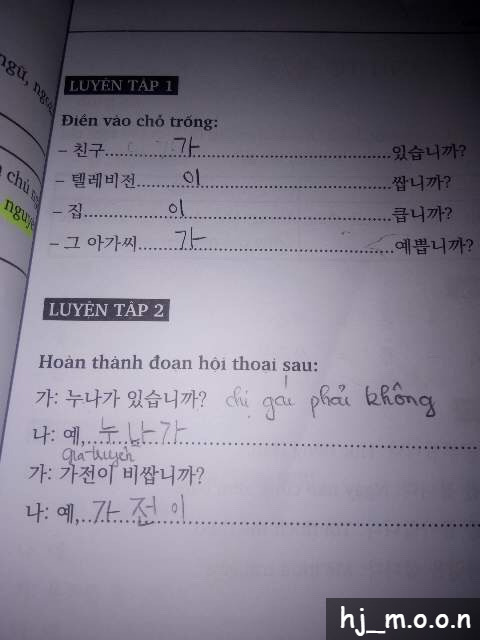 ngữ, ngoại
chủ ng
nguyê
LUYỆN TẬP 1
Điền vào chỗ trống:
– 친구....가....있습니까?
– 텔레비전....이....쌉니까?
– 집....이....큽니까?
– 그 아가씨....가....예쁩니까?
LUYỆN TẬP 2
Hoàn thành đoạn hội thoại sau:
가: 누나가 있습니까? chị gái phải không
나: 예,....누나가....
gia truyền
가: 가전이 비쌉니까?
나: 예,....가전이....
hj_m.o.o.n